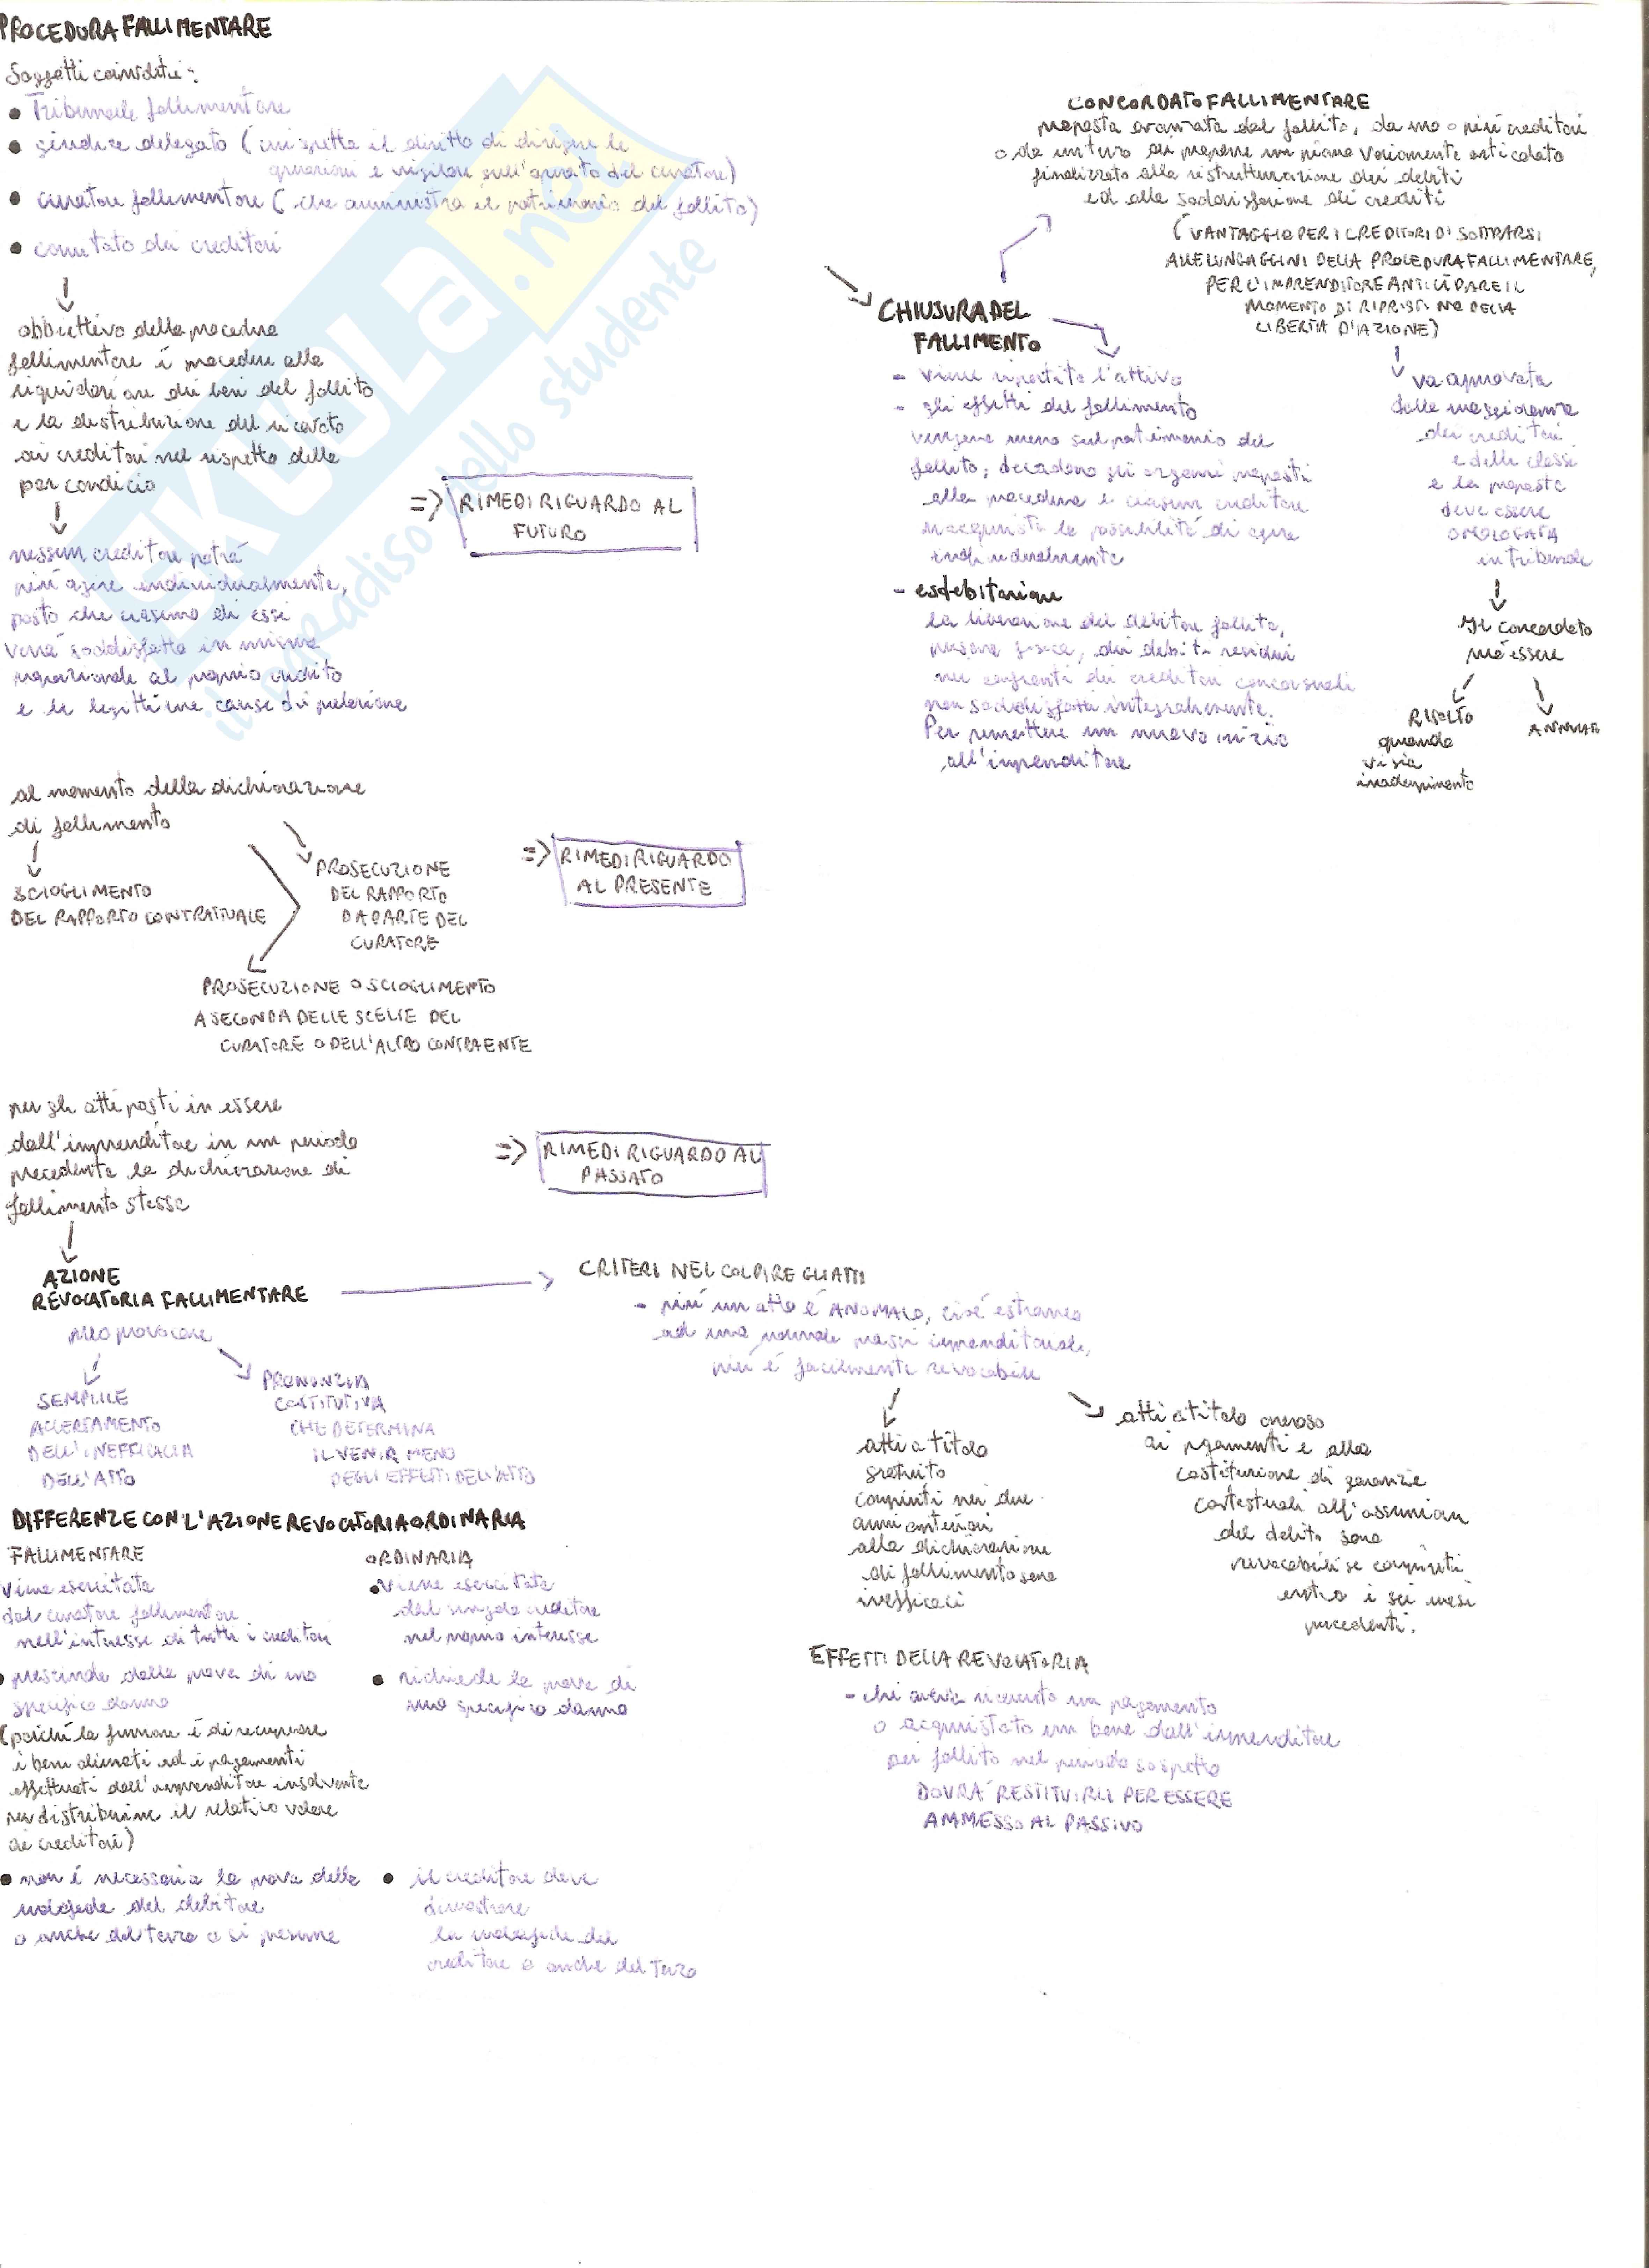 PROCEDURA FALLIMENTARE
Soggetti coinvolti:
• Tribunale fallimentare
• giudice delegato (cui spetta il diritto di dirigere le
operazioni e vigilare sull'operato del curatore)
• curatore fallimentare (che amministra il patrimonio del fallito)
• comitato dei creditori
obbiettivo della procedura
fallimentare è procedere alla
liquidazione dei beni del fallito
e la distribuzione del ricavato
ai creditori nel rispetto della
par condicio
=> RIMEDI RIGUARDO AL
FUTURO
nessun creditore potrà
più agire individualmente,
posto che ciascuno di essi
verrà soddisfatto in misura
proporzionale al proprio credito
e le legittime cause di prelazione
al momento della dichiarazione
di fallimento
SCIOGLIMENTO
DEL RAPPORTO CONTRATTUALE
PROSECUZIONE
DEL RAPPORTO
DA PARTE DEL
CURATORE
=> RIMEDI RIGUARDO
AL PRESENTE
PROSECUZIONE O SCIOGLIMENTO
A SECONDA DELLE SCELTE DEL
CURATORE O DELL'ALTRO CONTRAENTE
per gli atti posti in essere
dall'imprenditore in un periodo
precedente la dichiarazione di
fallimento stessa
=> RIMEDI RIGUARDO AL
PASSATO
AZIONE
REVOCATORIA FALLIMENTARE
può provocare
SEMPLICE
ACCERTAMENTO
DELL'INEFFICACIA
DELL'ATTO
PRONUNZIA
COSTITUTIVA
CHE DETERMINA
IL VENIR MENO
DEGLI EFFETTI DELL'ATTO
CRITERI NEL COLPIRE GLI ATTI
- più un atto è ANOMALO, cioè estraneo
ad una normale prassi imprenditoriale,
più è facilmente revocabile
atti a titolo
gratuito
compiuti nei due
anni anteriori
alla dichiarazione
di fallimento sono
inefficaci
atti a titolo oneroso
ai pgamenti e alla
costituzione di garanzie
contestuali all'assunzion
del debito sono
revocabili se compiuti
entro i sei mesi
precedenti.
DIFFERENZE CON L'AZIONE REVOCATORIA ORDINARIA
FALLIMENTARE
viene esercitata
dal curatore fallimentare
nell'interesse di tutti i creditori
• prescinde dalla prova di uno
specifico danno
(poiché la funzione è di recuperare
i beni alienati ed i pagamenti
effettuati dall'imprenditore insolvente
per distribuirne il relativo valore
ai creditori)
• non è necessaria la prova della
malafede del debitore
o anche del terzo o si presume
ORDINARIA
• viene esercitata
dal singolo creditore
nel proprio interesse
• richiede la prova di
uno specifico danno
• il creditore deve
dimostrare
la malafede del
creditore o anche del terzo
EFFETTI DELLA REVOCATORIA
- chi avrà ricevuto un pagamento
o acquistato un bene dall'imprenditore
poi fallito nel periodo sospetto
DOVRÀ RESTITUIRLI PER ESSERE
AMMESSO AL PASSIVO
CHIUSURA DEL
FALLIMENTO
- viene ripartito l'attivo
- gli effetti del fallimento
vengono meno sul patrimonio del
fallito; decadono gli organi preposti
alla procedura e ciascun creditore
riacquista la possibilità di agire
individualmente
- esdebitazione
la liberazione del debitore fallito,
persona fisica, dai debiti residui
nei confronti dei creditori concorsuali
non soddisfatti integralmente.
Per permettere un nuovo inizio
all'imprenditore
CONCORDATO FALLIMENTARE
proposta avanzata dal fallito, da uno o più creditori
o da un terzo di proporre un piano variamente articolato
finalizzato alla ristrutturazione dei debiti
ed alla soddisfazione di crediti
(VANTAGGIO PER I CREDITORI DI SOTTRARSI
ALLE LUNGAGGINI DELLA PROCEDURA FALLIMENTARE,
PER L'IMPRENDITORE ANTICIPARE IL
MOMENTO DI RIPRISTINO DELLA
LIBERTÀ D'AZIONE)
va approvata
dalla maggioranza
dei creditori
e delle classi
e la proposta
deve essere
OMOLOGATA
in tribunale
Il concordato
può essere
RISOLTO
quando
vi sia
inadempimento
SKUOLA.net
il paradiso dello studente